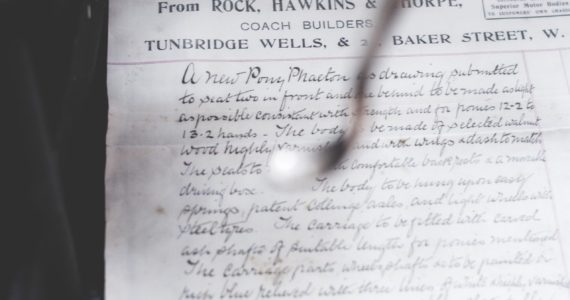 From ROCK, HAWKINS & THORPE,
COACH BUILDERS,
Superior Motor Bodies
TUNBRIDGE WELLS, & BAKER STREET, W.
A new Pony Phaeton as drawing submitted
to seat two in front and one behind to be made as light
as possible consistent with strength and for ponies 12-2 to
13-2 hands - The body be made of selected walnut
wood highly and wings & dash to match
The seats to comfortable back rests & a movable
driving box. The body to be hung upon easy
springs, patent Collinge axles, and light wheels with
steel tyres. The carriage to be fitted with curved
ash shafts of suitable length for ponies mentioned.
The carriage parts wheels & shafts &c to be painted in
rich blue relieved with three lines of white